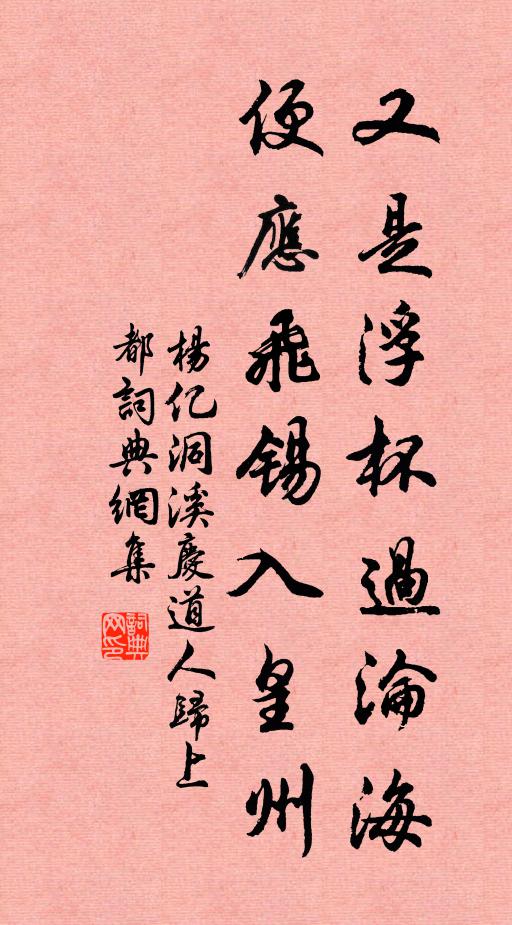 又是浮杯過淪海
便應飛錫入皇州
楊亿洞溪慶道人歸上
都詞典網集
詞典
网印